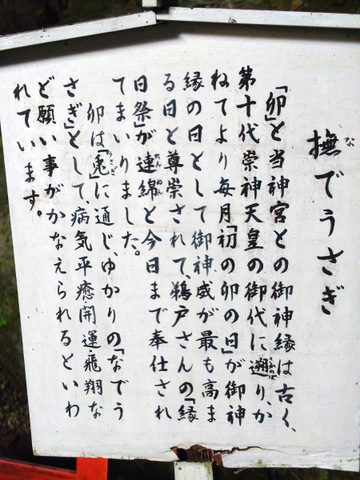 撫でうさぎ
な
「卯」と当神宮との御神縁は古く、
第十代崇神天皇の御代に遡りか
さかのぼ
ねてより毎月「初の卯の日」が御神
縁の日として御神威が最も高ま
る日と尊崇されて、鵜戸さんの「縁
日祭」が連綿と今日まで奉仕され
れんめん
てまいりました。
卯は「兎」に通じ、ゆかりの「なでう
うさぎ
さぎ」として、病気平癒開運飛翔な
ど願い事がかなえられるといわ
れています。